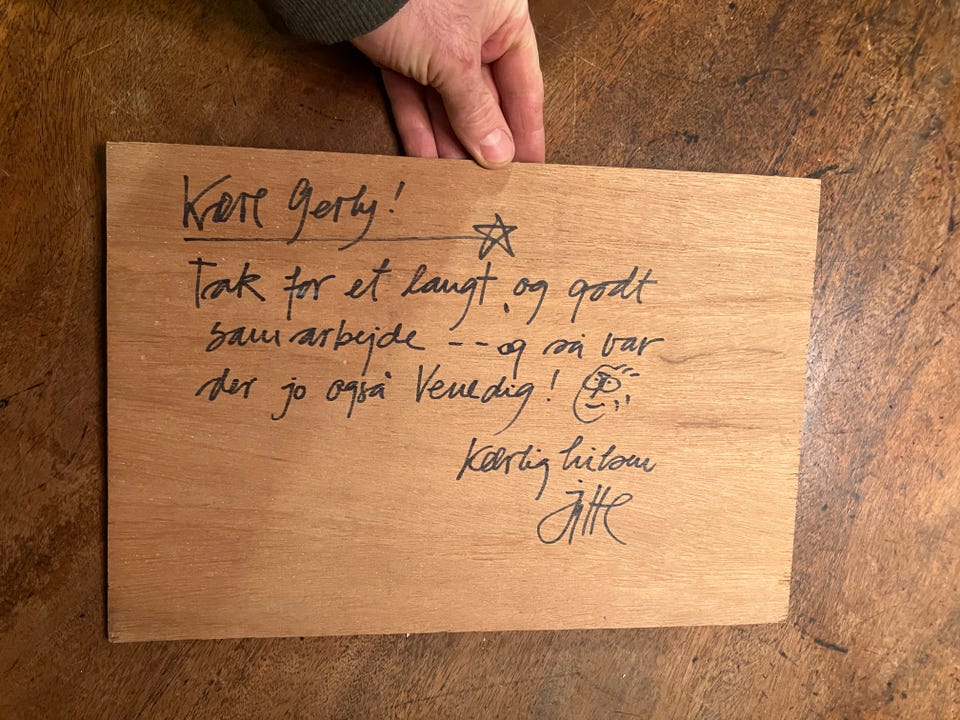 Kære Gerly!
Tak for et langt og godt
samarbejde -- og så var
der jo også Venedig!
Kærlig hilsen
Jytte